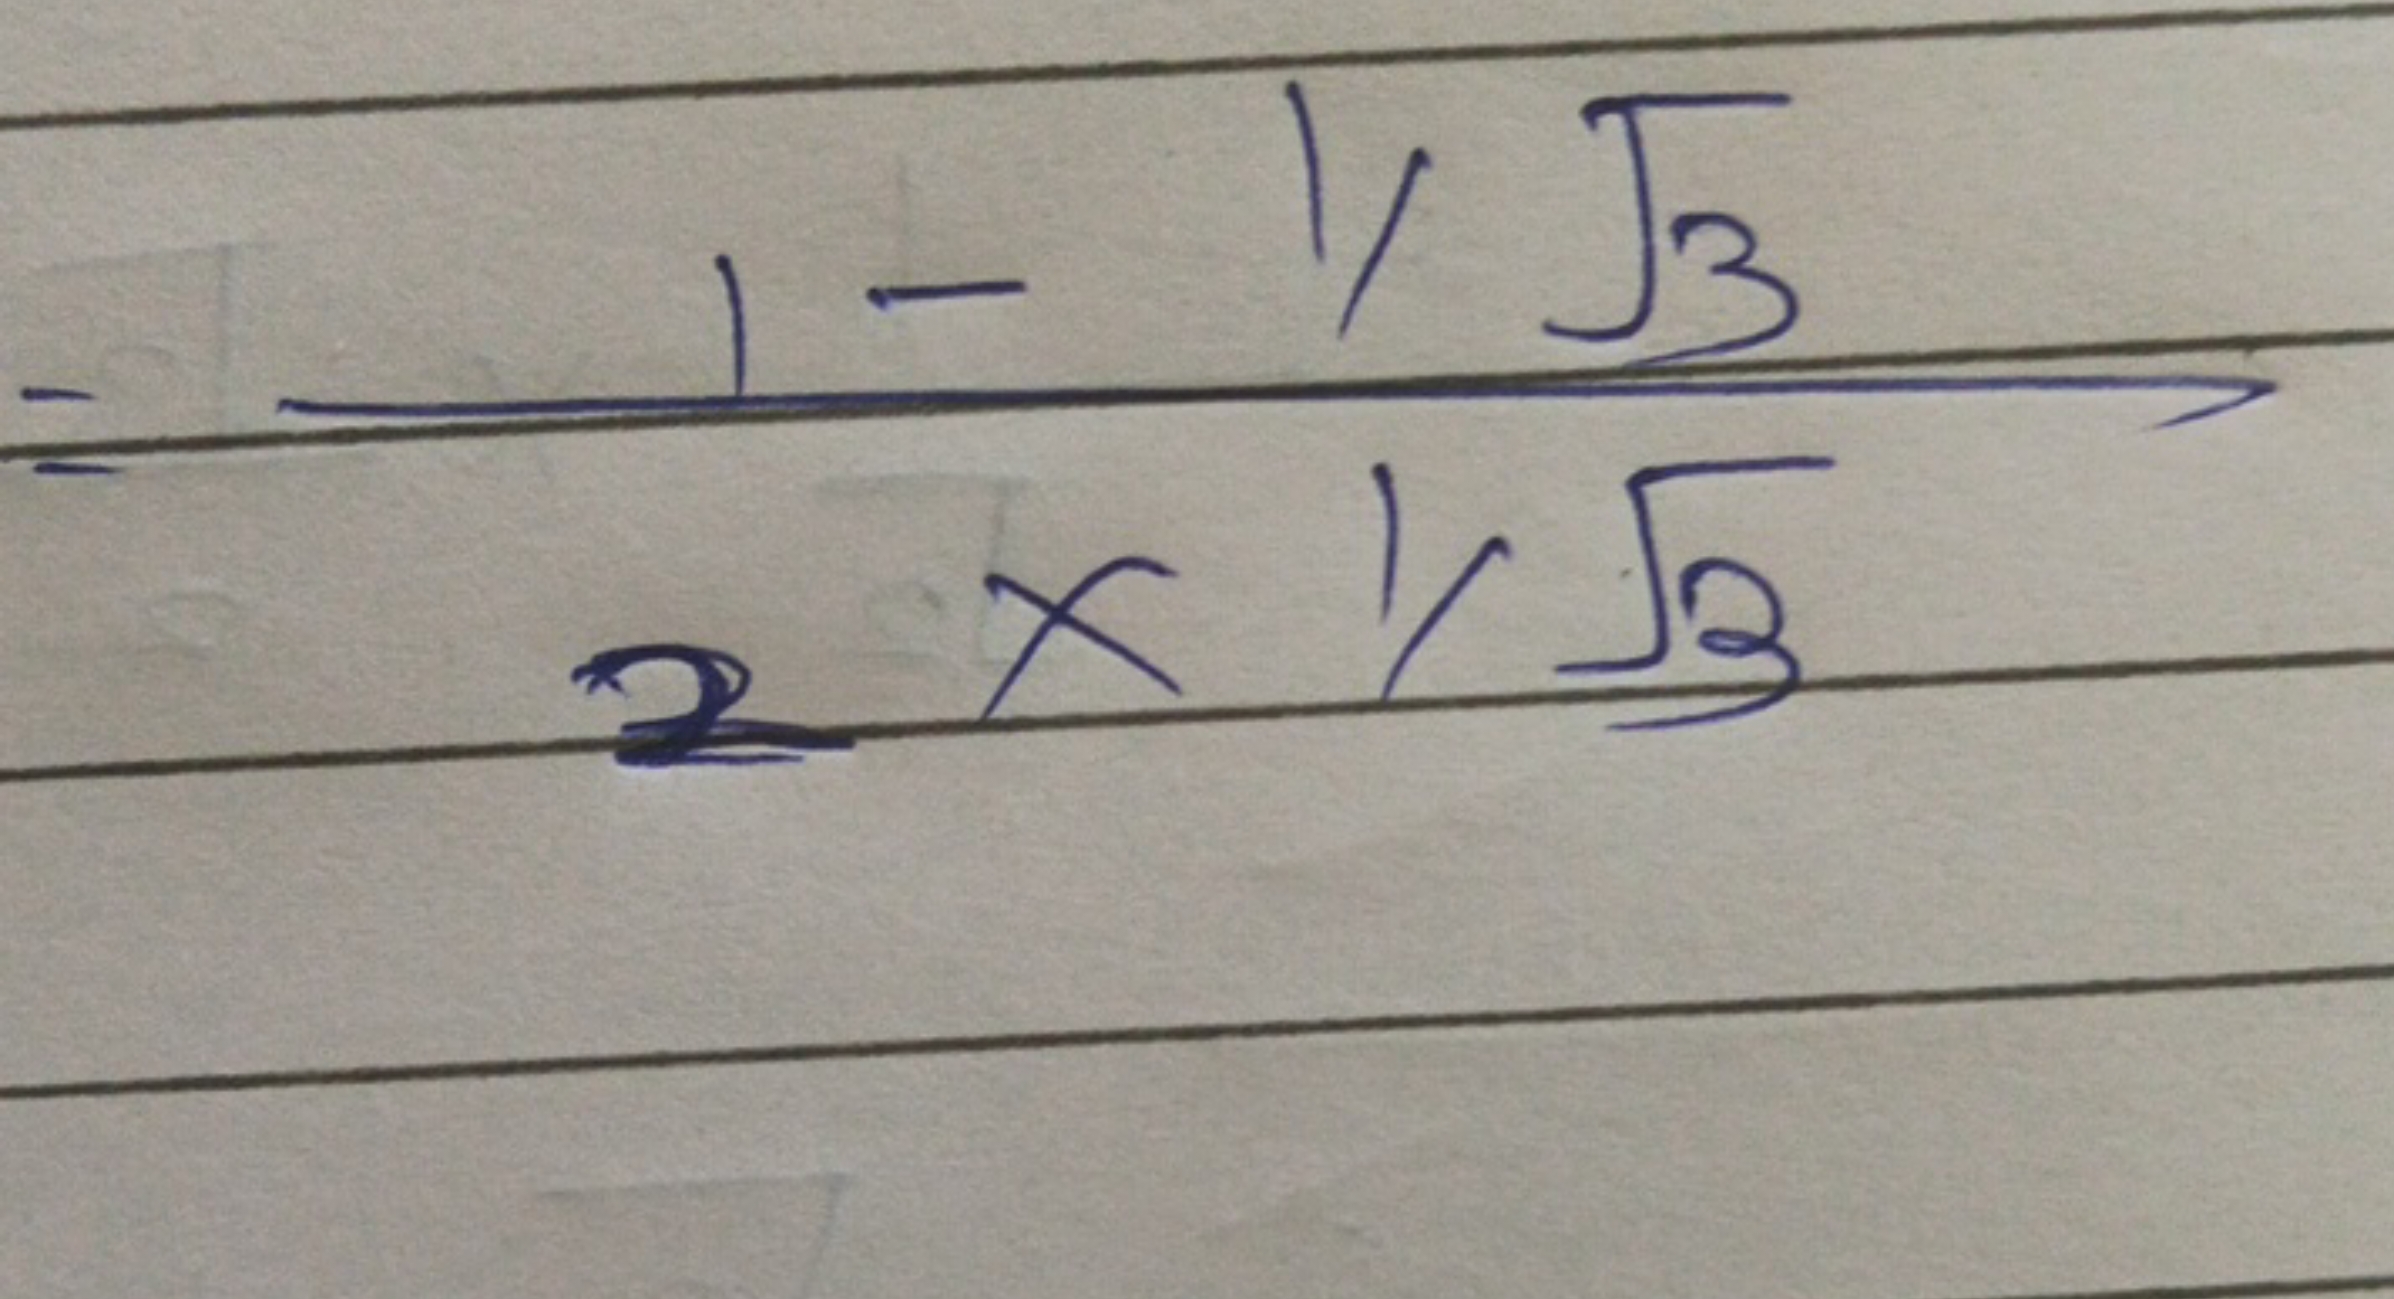 1 - 1/√3
=
2 × 1/√3